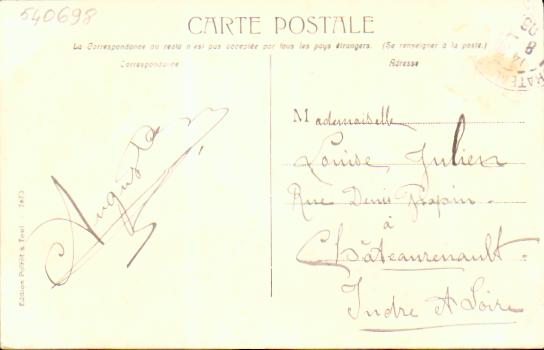 540698
CARTE POSTALE
La Correspondance au recto n'est pas acceptée par tous les pays étrangers. (Se renseigner à la poste.)
Correspondance
Adresse
Auguste
Mademoiselle
Louise Julien
Rue Denis Papin
à
Châteaurenault
Indre et Loire